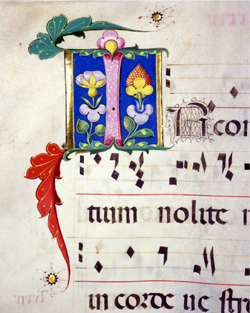 IN con
tium nolite
in corde ue str